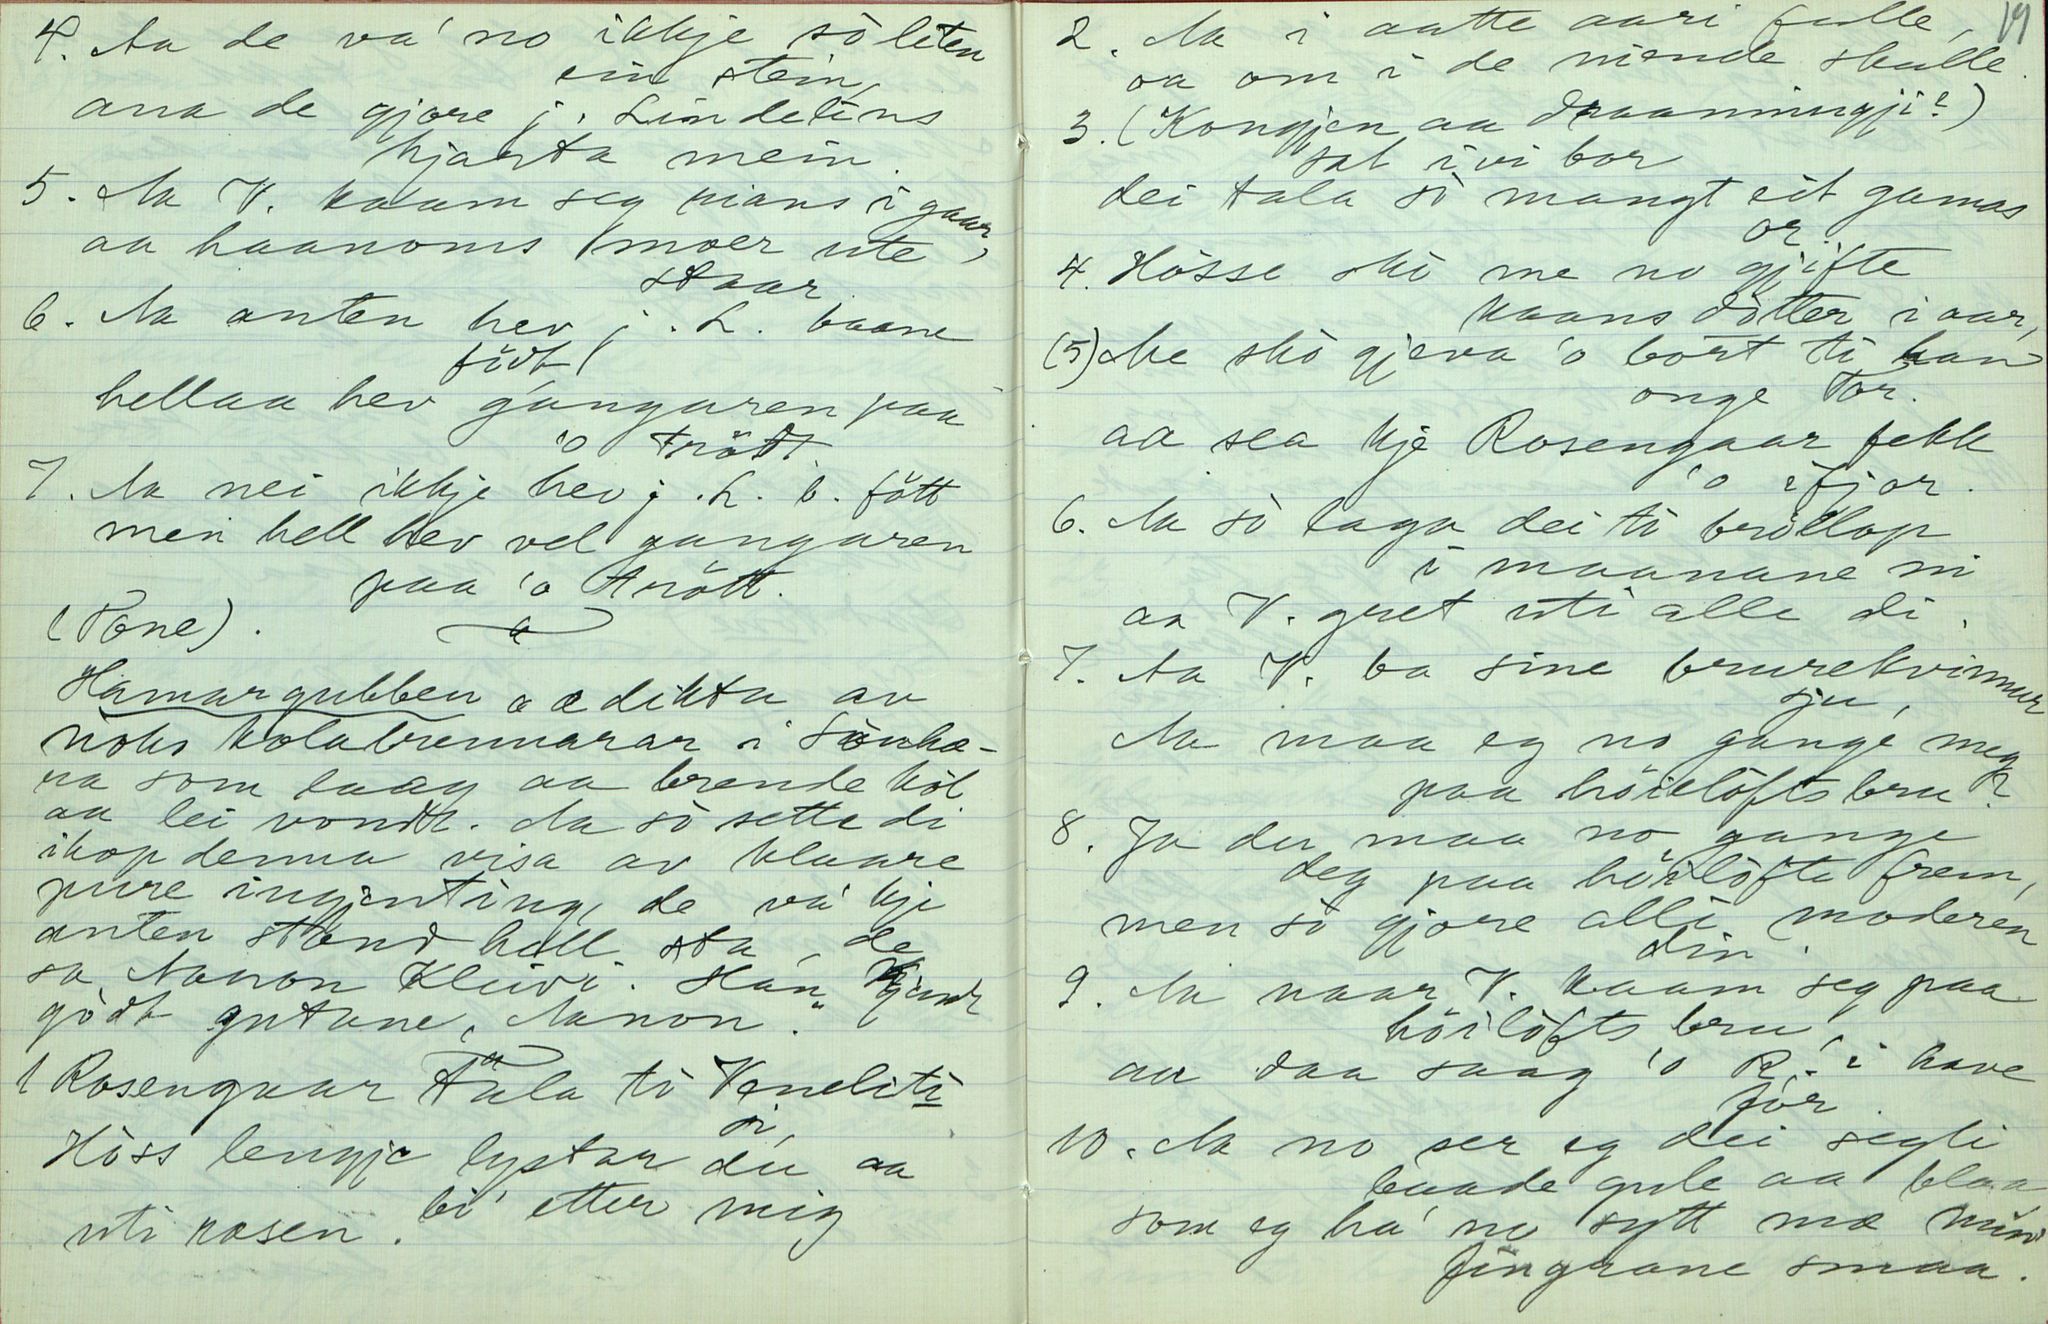 4. Aa de va' no ikkje so liten
ein stein,
ana de gjore j. Lindelins
hjarta mein.
5. Aa V. kaam seg rians i gaar,
aa haanoms moer ute
staar.
6. Aa anten hev j. L. baane
födt,
hellaa hev gangaren paa
'o trödt.
7. Aa nei ikkje hev j. L. b. fött
men hell hev vel gangaren
paa 'o trött.
(Tone).
Hamargubben æ dikta av
noko kolabrennarar i
som laag aa brende kol
aa lei vondt. Aa so sette di
ihop denna visa av klaare
pure ingjenting, de va' kje
anten stand hell sta, de
sa Aanon Kleivi. Han kjende
godt gutane, Aanon."
1 Rosengaar tala ti Veneliti
si,
Höss lengje lystar du aa
bi' etter mig
uti rosen.
19
2. Aa i aatte aari fulle,
aa om i de niande skulle.
3. (Kongjen aa draanningji?)
sat ivi bor
dei tala so mangt eit gamas
or.
4. Hösse sko me no gjifte
kaans dotter i aar,
(5) Me sko gjeva 'o bort ti han
onge Tor.
aa sea kje Rosengaar fekk
'o ifjor.
6. Aa so laga dei ti bröllop
i maanane ni
aa V. gret uti alle di.
7. Aa V. ba sine brurekvinnur
sju,
Aa maa eg no gange meg
paa höielöftsbru?
8. Ja du maa no gange
deg paa höilöfte frem,
men so gjore alli moderen
din.
9. Aa naar V. kaam seg paa
höilöfts bru,
aa daa saag 'o R. i have
for.
10. Aa no ser eg dei segli
baade gule aa blaa
som eg ha' no sytt mæ mine
fingrane smaa.